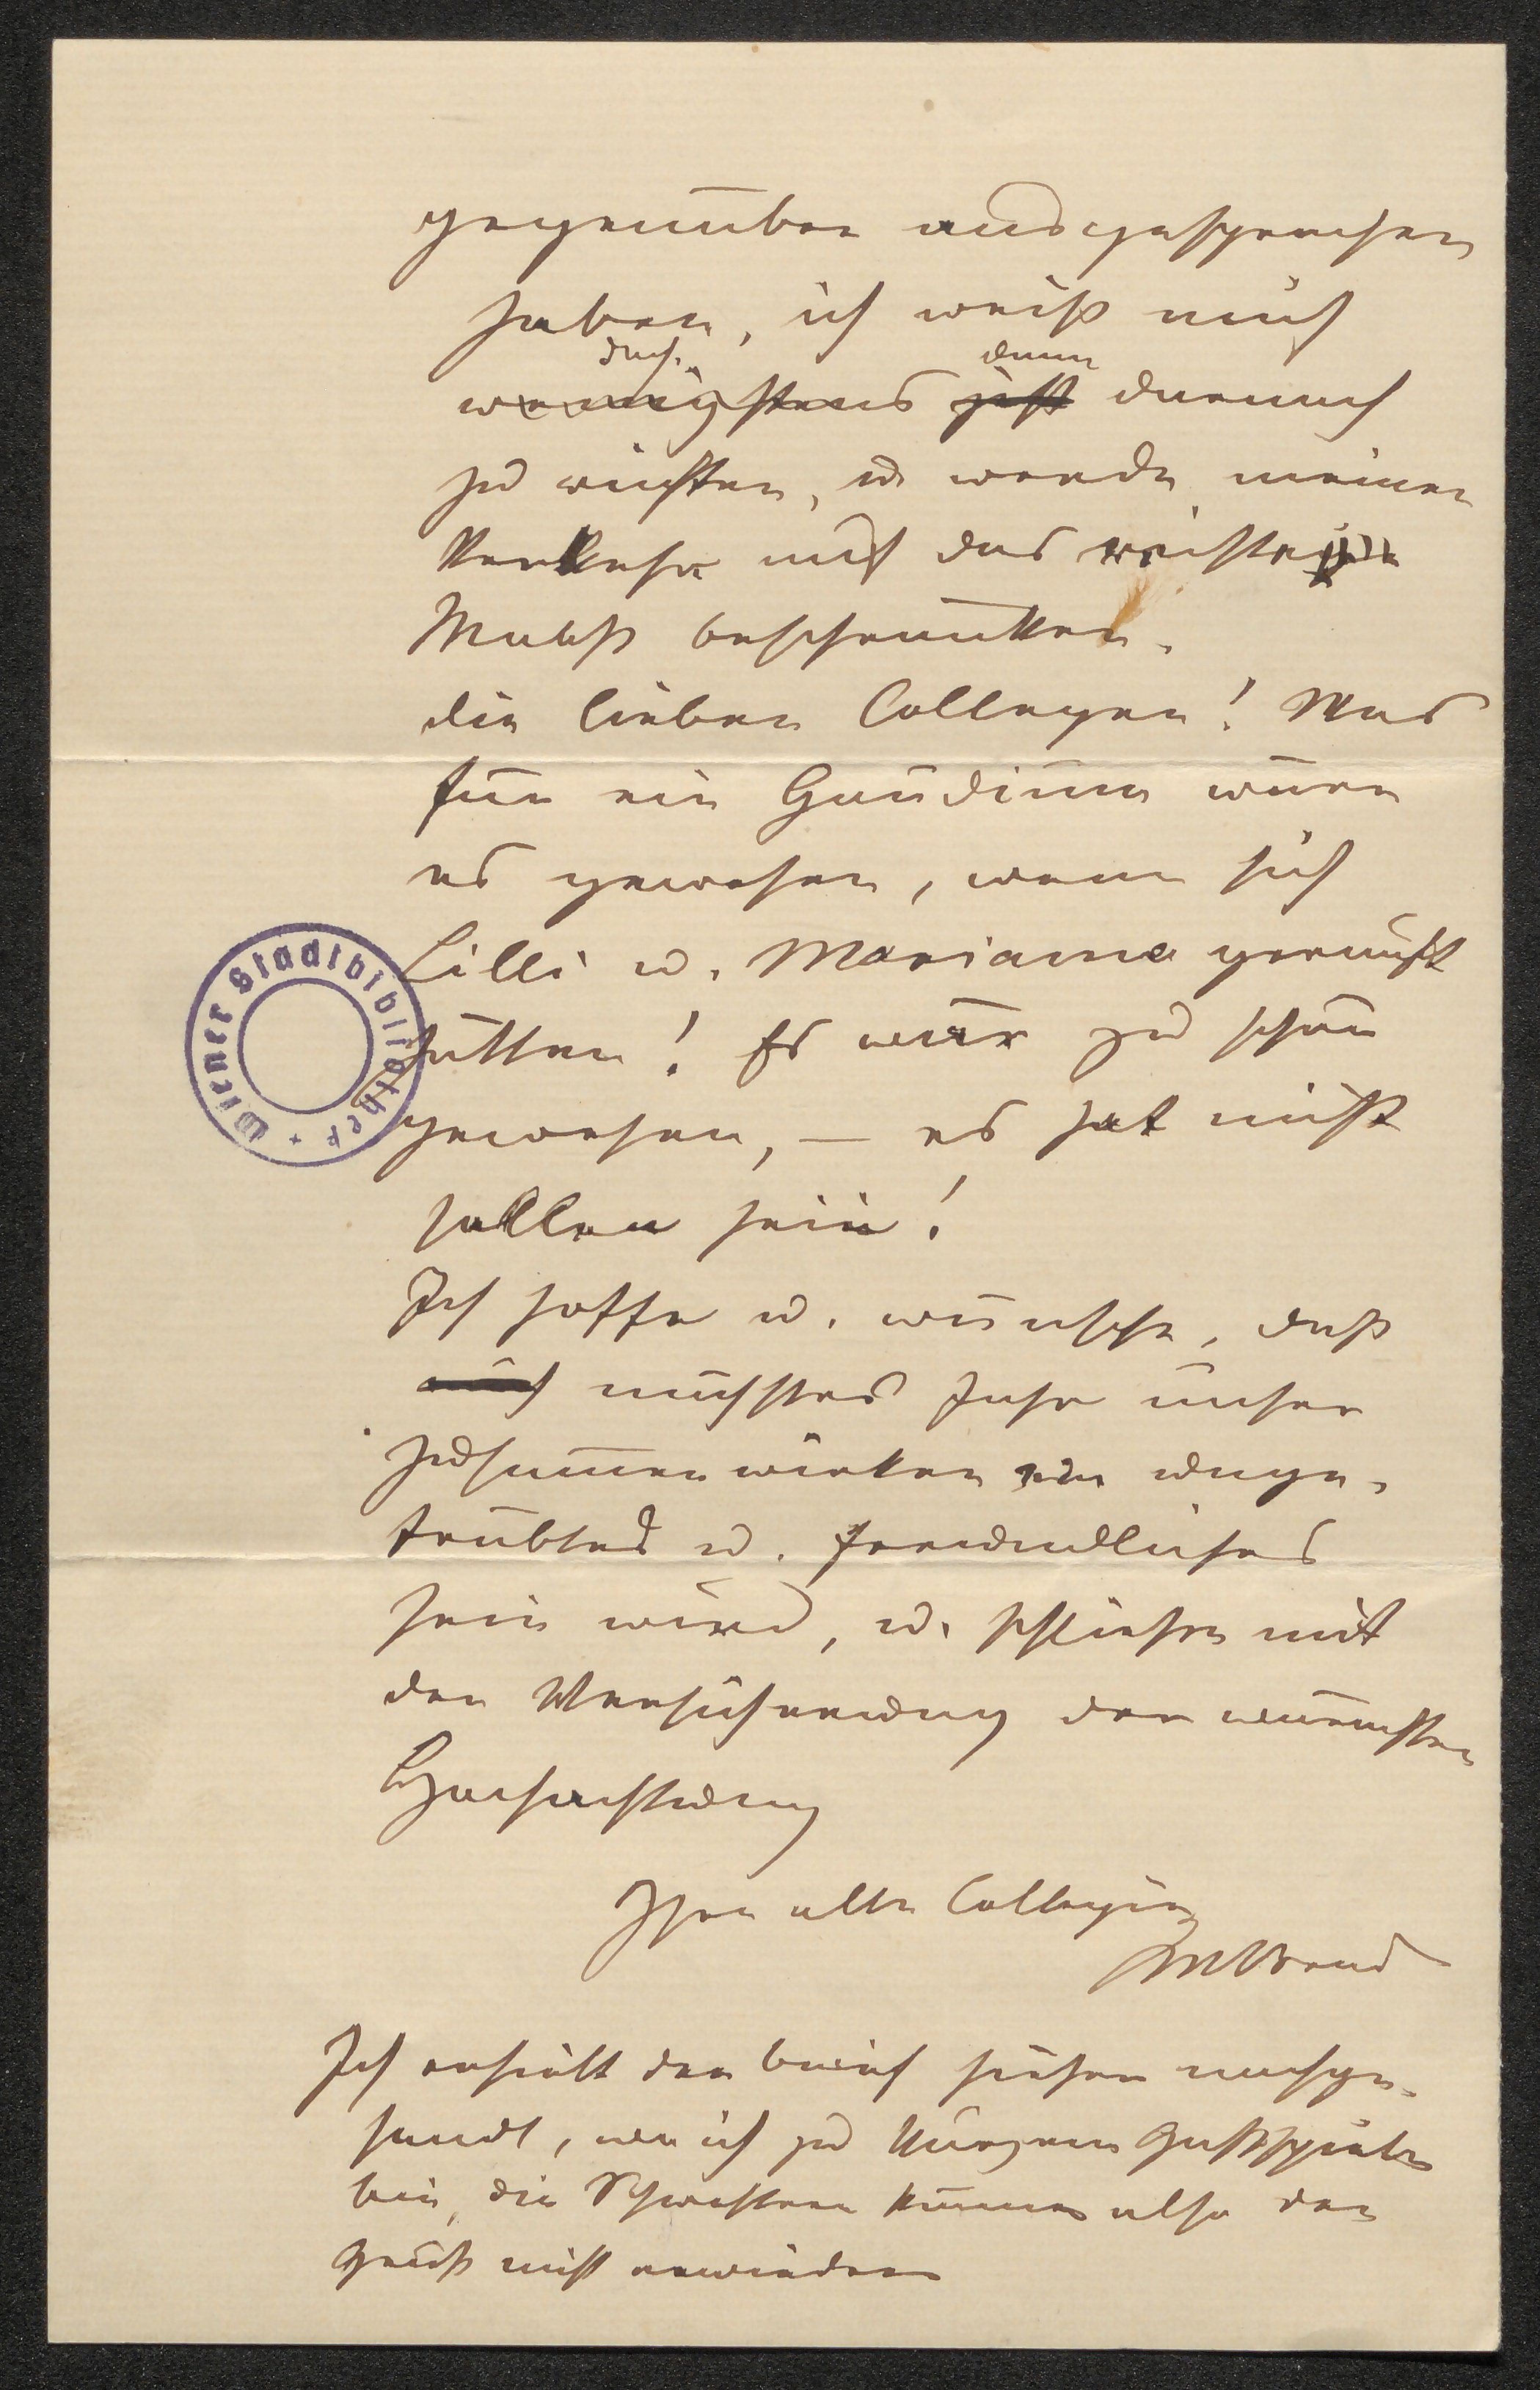 gegenüber ausgesprochen
haben, ich weiß mich
doch dann
wenigstens jetzt darnach
zu richten, u. werde meinen
Verkehr auf das
Maaß beschränken.
Die lieben Collegen! Was
für ein Gaudium wäre
es gewesen, wenn sich
Lilli u. Marianne gerauft
hätten! Es wär zu schön
gewesen, — es hat nicht
sollen sein!
Ich hoffe u. wünsche, daß
auch nächstes Jahr unser
Zusammenwirken ein unge-
trübtes u. freundliches
sein wird, u. schließe mit
der Versicherung der wärmsten
Hochachtung
Ihre alte Collegin
MBrand
Ich erhielt den Brief hieher nachge-
sandt, wo ich zu kurzem Gastspiele
bin, die Schwestern können also den
Gruß nicht erwiedern
Wiener Stadtbibliothek